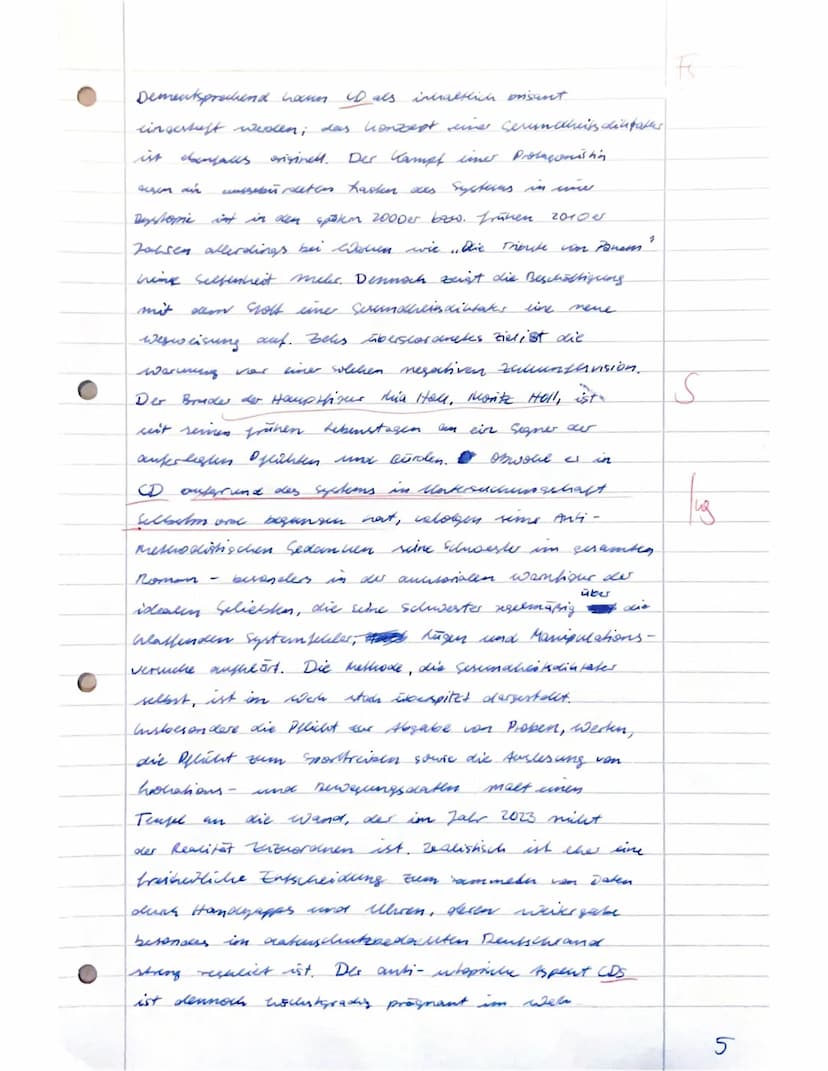 Fs
Dementsprechend kann CD als inhaltlich brisant
eingestuft werden; das Konzept einer Gesundheitsdiktatur
ist ebenfalls originell. Der Kampf einer Protagonistin
gegen die Tücken des Systems in einer
Dystopie ist in den späten 2000er bzw. frühen 2010er
Jahren allerdings bei Werken wie „Die Tribute von Panem"
keine Seltenheit mehr. Dennoch zeigt die Beschäftigung
mit dem Stoff einer Gesundheitsdiktatur eine neue
Wegweisung auf. Zehs übergeordnetes Ziel ist die
Warnung vor einer solchen negativen Zukunftsvision.
Der Bruder der Hauptfigur Mia Holl, Moritz Holl, ist
S
seit seinen frühen Lebenstagen an ein Gegner der
auferlegten Pflichten und Bürden. Obwohl er in
CD aufgrund des Systems in Untersuchungshaft
Selbstmord begangen hat, verfolgen seine Anti-
Methodistischen Gedanken seine Schwester im gesamten
Roman – besonders in der auktorialen Warnfigur der
idealen Geliebten, die seine Schwester regelmäßig über die
klaffenden Systemfehler, Lügen und Manipulations-
versuche aufklärt. Die Methode, die Gesundheitsdiktatur
selbst, ist im Werk stark überspitzt dargestellt.
Insbesondere die Pflicht zur Abgabe von Proben, Werten,
die Pflicht zum Sporttreiben sowie die Auslesung von
Lokations- und Bewegungsdaten malt einen
Teufel an die Wand, der im Jahr 2023 nicht
der Realität zuzuordnen ist. Realistisch ist eher eine
freiheitliche Entscheidung zum Sammeln von Daten
durch Handyapps und Uhren, deren Weitergabe
besonders im datenschutzbedachten Deutschland
streng reguliert ist. Der anti-utopische Aspekt CDs
ist dennoch höchstgradig prägnant im Werk
5